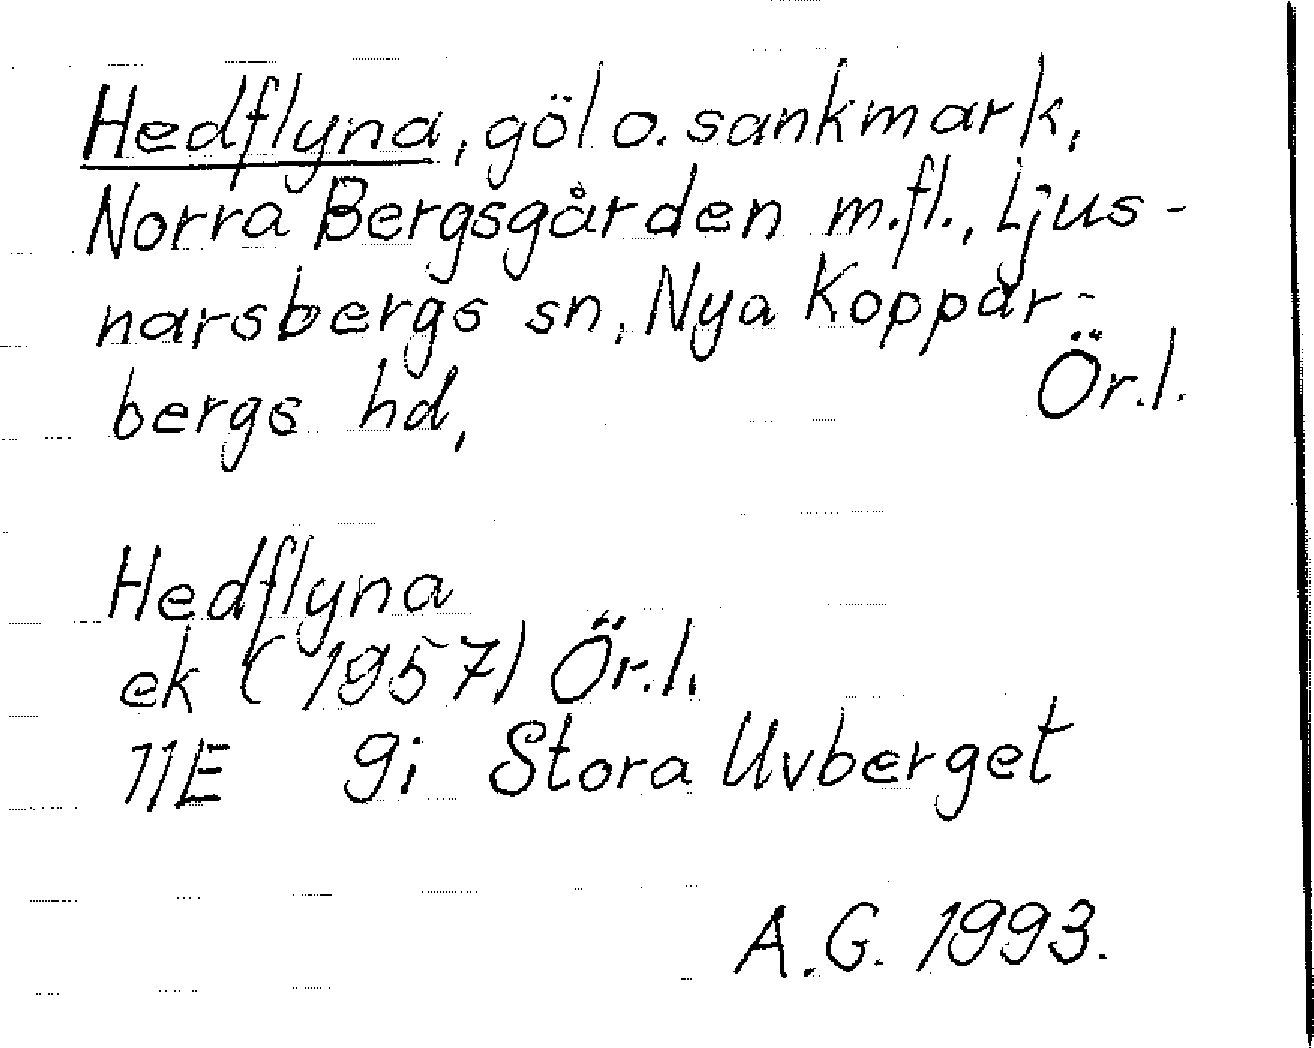 Hedflyna, göl o. sankmark,
Norra Bergsgården m.fl., Ljus-
narsbergs sn, Nya Koppar-
bergs hd, Ör.l.
Hedflyna
ek (1957) Ör.l.
11E 9i Stora Uvberget
A.G. 1993.